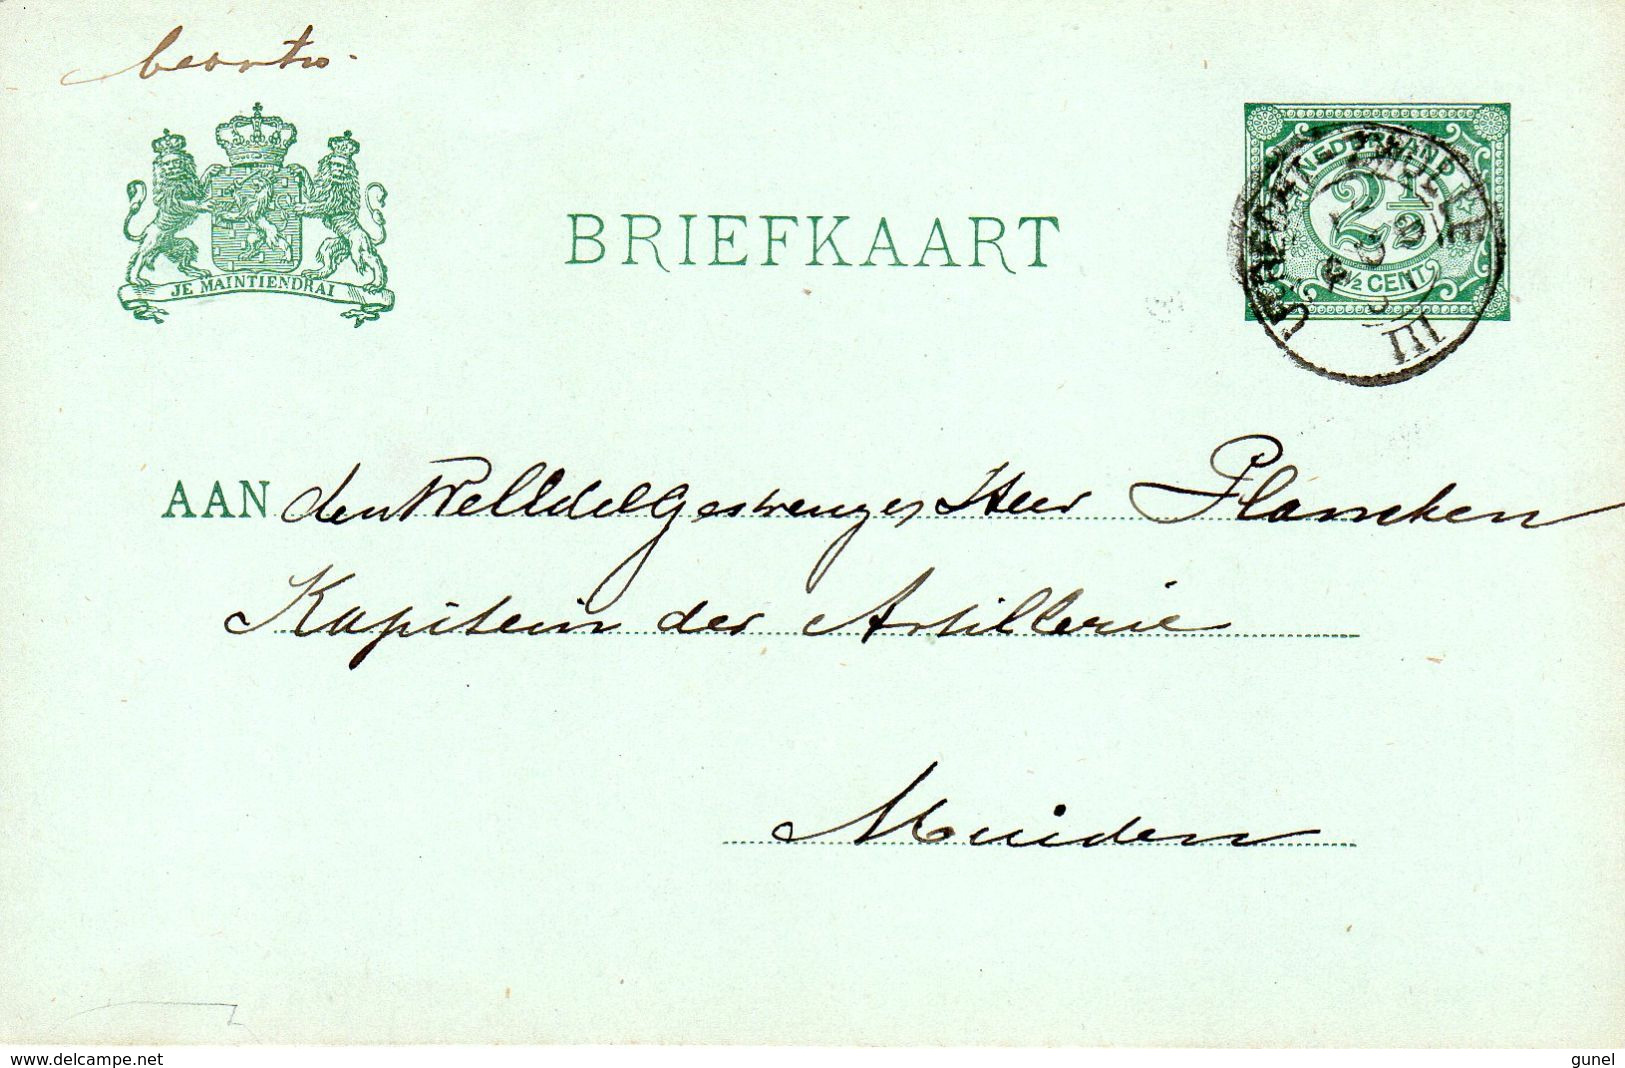 beantw.
JE MAINTIENDRAI
BRIEFKAART
NEDERLAND
2½
2½ CENT
ZWOLLE
III
AAN den WelEdelGestrenges Heer Plancken
Kapitein der Artillerie
Muiden
www.delcampe.net
gunel